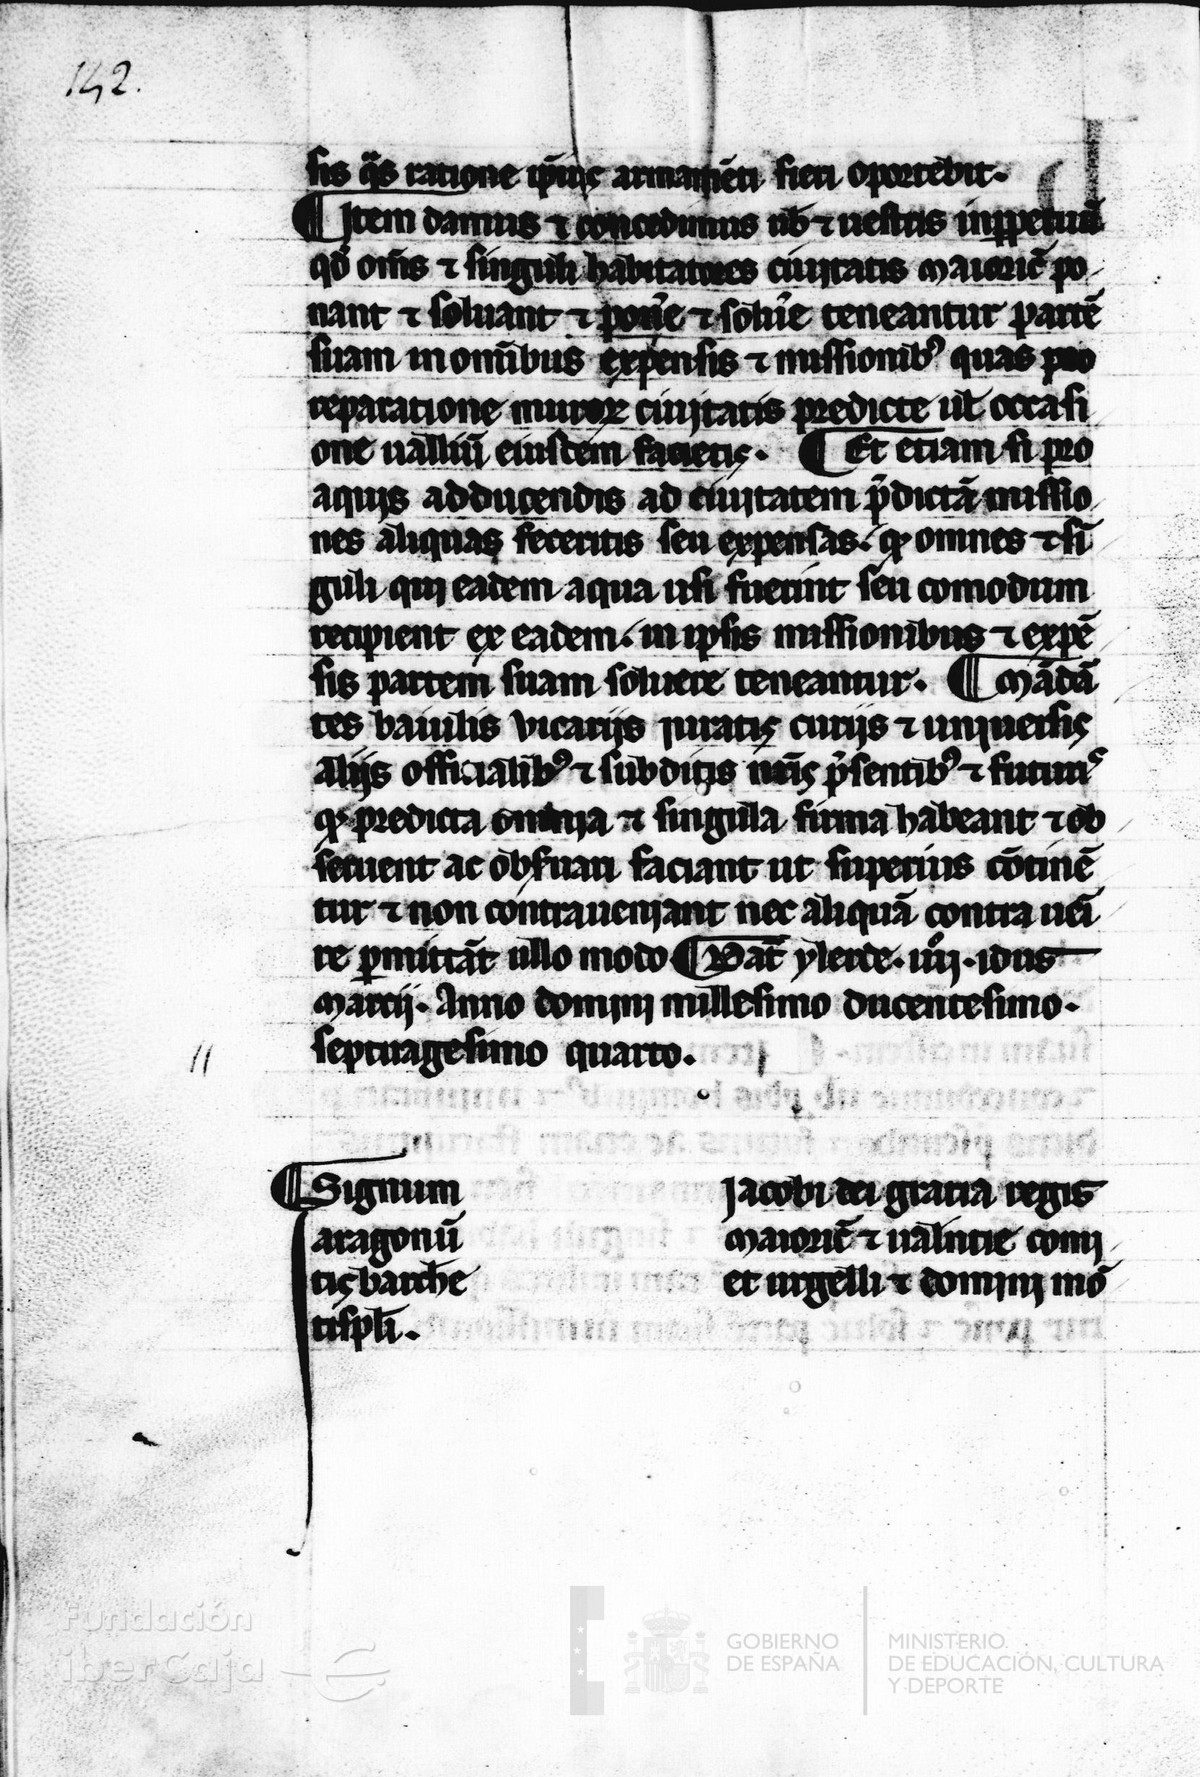 142.
sis q̄s ratione ip̄ius armam̄eti fieri oportebit.
¶ Item damus ⁊ concedimus uob̄ ⁊ uestris inp̱petuū
qd̄ om̄s ⁊ singuli habitatores ciuitatis Maioric̄ po
nant ⁊ soluant ⁊ pon̄e ⁊ solu̓e teneantur partē
suam in om̄ibus expensis ⁊ missionib᾽ quas pro
reparatione muroꝝ ciuitatis predicte ul̄ occasi
one ualliū eiusdem facietis. ¶ Et etiam si pro
aquis adducendis ad ciuitatem p̄dictā missio
nes aliquas feceritis seu expensas. qꝫ omnes ⁊ sī
guli qui eadem aqua usi fuerint seu comodum
recipient ex eadem. in ipsis missionibus ⁊ expē
sis partem suam soluere teneantur. ¶ Mādā
tes baiulis vicarijs iuratis curijs ⁊ uniuersis
alijs officialib᾽ ⁊ subditis nr̄is p̄sentib᾽ ⁊ futur᾽
qꝫ predicta omnia ⁊ singula firma habeant ⁊ ob
seruent ac obs̓uari faciant ut superius cōtinē
tur ⁊ non contraueniant nec aliquā contra ueī
re p̱mittāt ullo modo ¶ Dat̄ ylerde. iiijº. idus
Marcij. Anno domini millesimo ducentesimo.
septuagesimo quarto.
¶ Signum Jacobi dei gratia regis
aragonū Maioric̄ ⁊ ualn̄tie comi
tis barch̄e et urgelli ⁊ domini mō
tispl̄i.
Fundación
iberCaja
GOBIERNO
DE ESPAÑA
MINISTERIO
DE EDUCACIÓN, CULTURA
Y DEPORTE